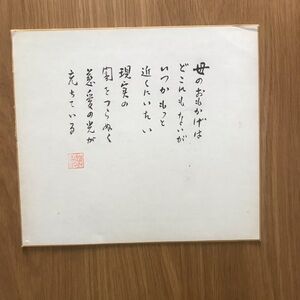 母のおもかげは
どこれも
いつかもっと
近くにいたい
現実の
闇をつらぬく
慈愛の光が
充ちている